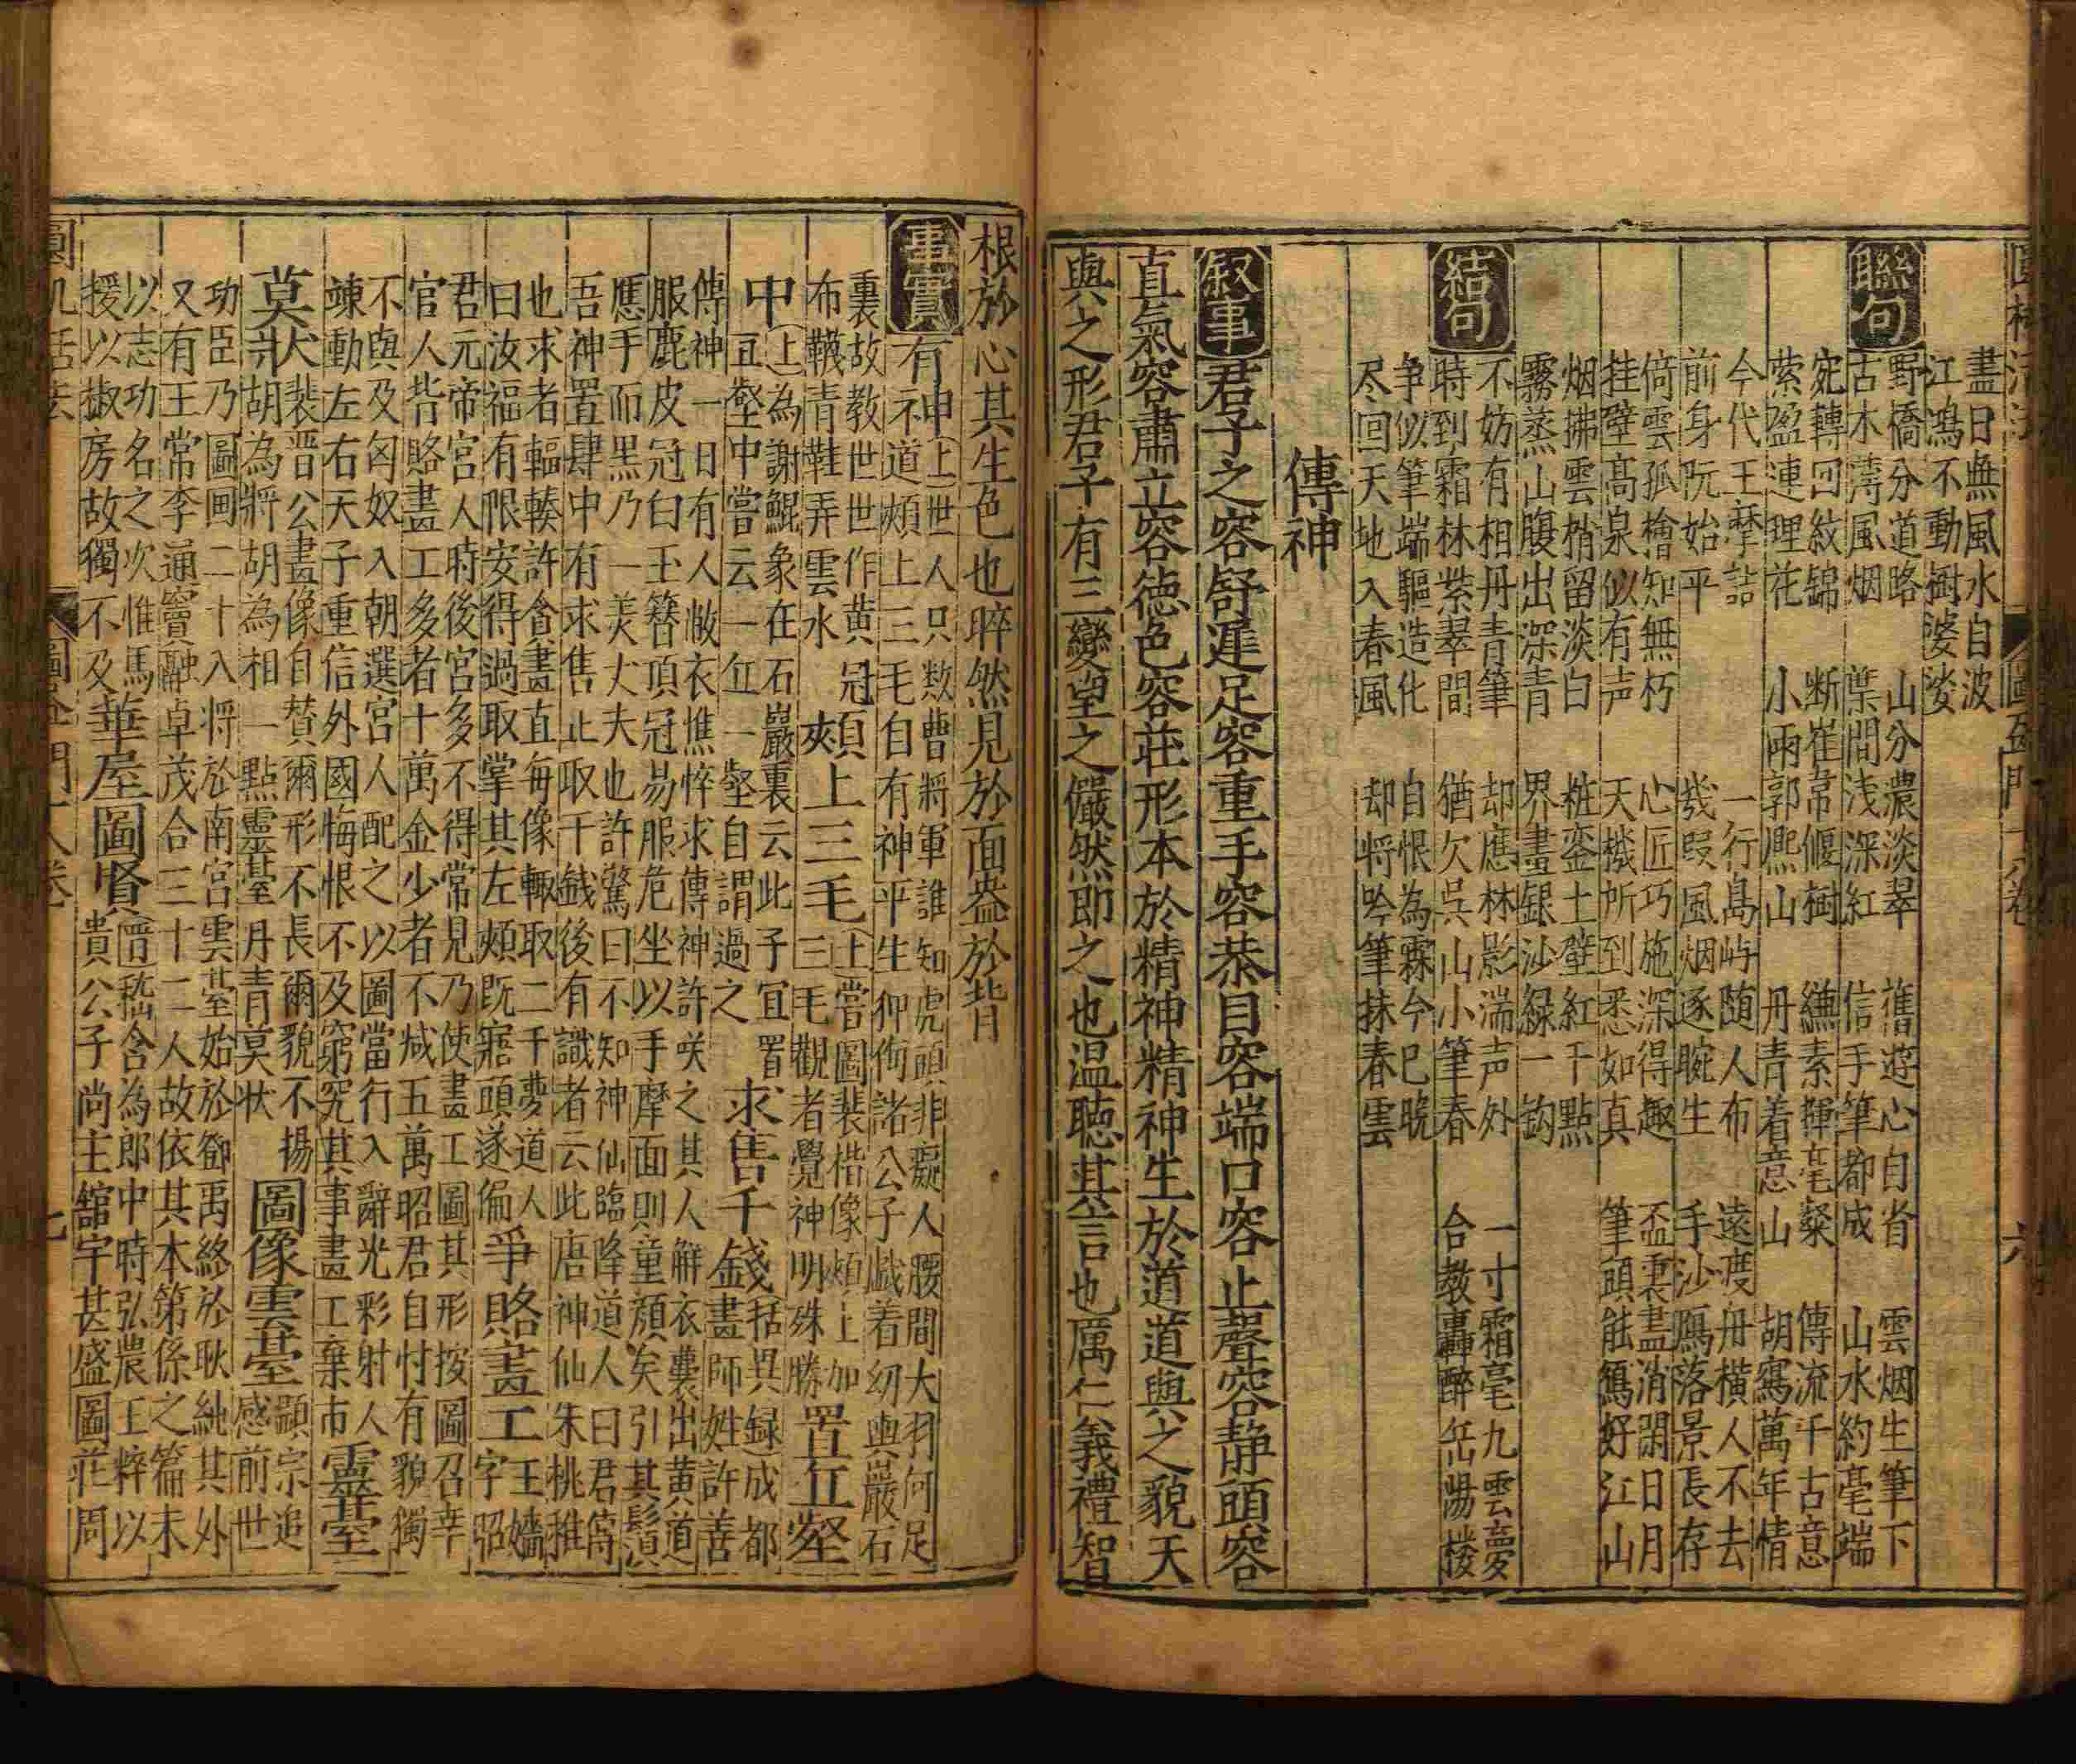 畫日無風水自波
江鴻不動樹婆娑
聯句
野橋分道路　山分濃淡翠　舊遊心自省　雲烟生筆下
古木薄風烟　葉間浅深紅　信手筆都成　山水約毫端
宛轉回紋錦　断崔常偃樹　縑素揮毫粲　傳流千古意
縈盈連理花　小雨郭熈山　丹青着意山　胡寫萬年情
今代王摩詰　一行島屿随人布　遠渡舟横人不去
前身阮始平　幾叚風烟逐腕生　手沙鴈落景長存
倚雲孤檜知無朽　心匠巧施深得趣　盃裏盡消閑日月
挂壁髙泉似有声　天機所到悉如真　筆頭能寫好江山
烟拂雲梢留淡白　粧巒土壁紅千點
霧蒸山腹出深青　界畫銀沙緑一鈎
結句
不妨有相丹青筆　却應林影湍声外　一寸霜毫九雲夢
時到霜林紫翠間　猶欠呉山小筆春　合教轟醉岳陽楼
争似筆端驅造化　自恨為霖今已晩
尽回天地入春風　却将吟筆抹春雲
傳神
叙事　君子之容舒遲足容重手容恭目容端口容止聲容静頭容
直氣容肅立容德色容莊形本於精神精神生於道道與之貌天
與之形君子有三變望之儼然即之也温聴其言也厲仁義禮智
根於心其生色也睟然見於面盎於背
事實
有神
上世人只数曹將軍誰知虎頭非癡人腰間大羽何足
道頰上三毛自有神平生狎侮諸公子戯着幼輿嚴石
裏故教世世作黄冠
布韈青鞋弄雲水
頰上三毛
上嘗圖裴楷像頰上加
三毛觀者覺神明殊勝
置丘壑
中
上為謝鯤象在石巖裏云此子宜置
丘壑中嘗云一丘一壑自謂過之
求售千錢
括異録成都
畫師姓許善
傳神一日有人敝衣憔悴求傳神許咲之其人觧衣囊出黄道
服鹿皮冠白玉簪頂冠易服危坐以手摩面則童顔矣引其髭湏
應手而黒乃一羙丈夫也許驚曰不知神仙臨降道人曰君傳
吾神置肆中有求售止取千錢後有識者云此唐神仙朱桃推
也求者輻輳許貪畫直每像輙取二千夢道人
曰汝福有限安得過取掌其左頰既寤頭遂偏
爭賂畫工
王嬙
字昭
君元帝宮人時後宮多不得常見乃使畫工圖其形按圖召幸
官人皆賂畫工多者十萬金少者不减五萬昭君自忖有貌獨
不與及匈奴入朝選宮人配之以圖當行入辭光彩射人
竦動左右天子重信外國悔恨不及窮究其事畫工棄市
靈臺
莫状
裴晋公畫像自賛爾形不長爾貌不揚
胡為將胡為相一點靈臺丹青莫状
圖像雲臺
顯宗追
感前世
功臣乃圖画二十八将於南宫雲䑓始於鄧禹終於耿純其外
又有王常李通竇融卓茂合三十二人故依其本第係之篇未
以志功名之次惟馬
援以椒房故獨不及
華屋圖賢
嵇含為郎中時弘農王粹以
貴公子尚主舘宇甚盛圖莊周